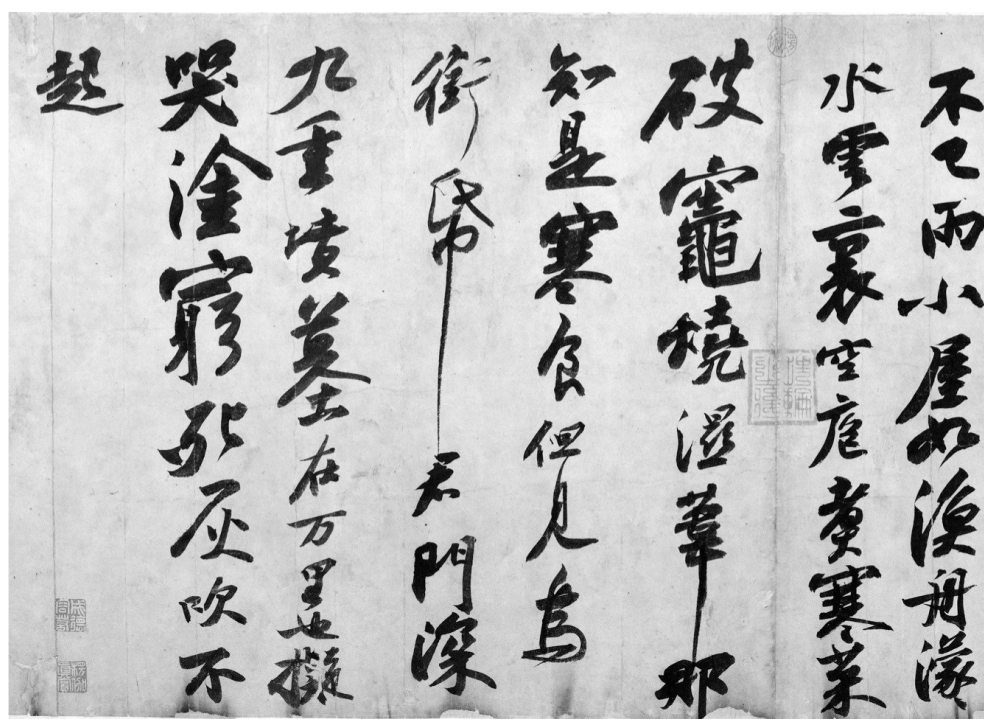 不已雨小屋如漁舟濛
水雲裏空庖煑寒菜
破竈燒濕葦那
知是寒食但見烏
銜帋君門深
九重墳墓在万里也擬
哭塗窮死灰吹不
起